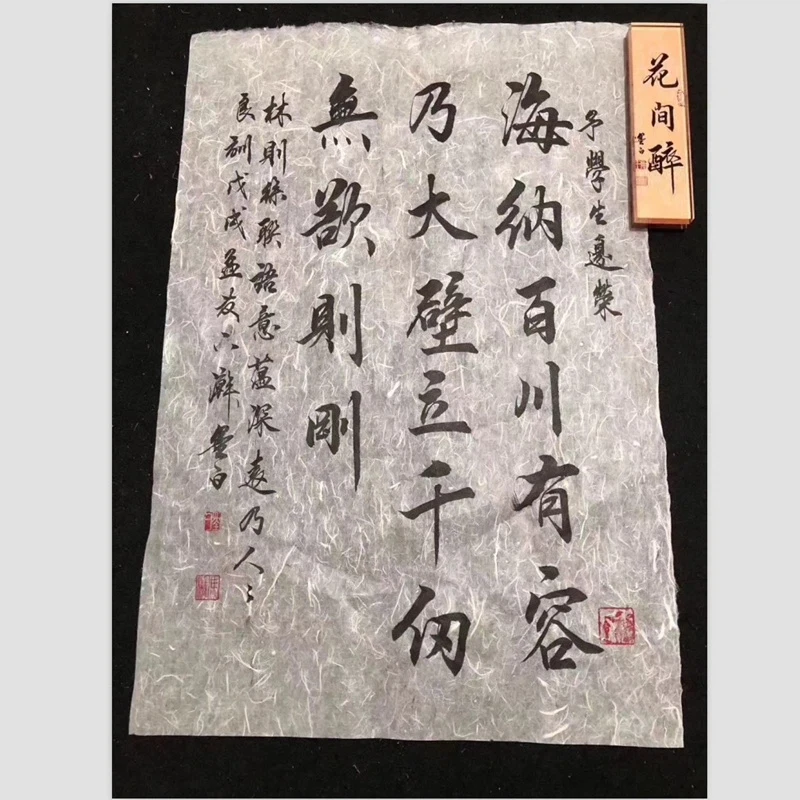 花间醉
墨白
予學生邊榮
海納百川有容
乃大壁立千仞
無欲則剛
林則徐聯語意蘊深遠乃人々
良訓戊戌友六墨白